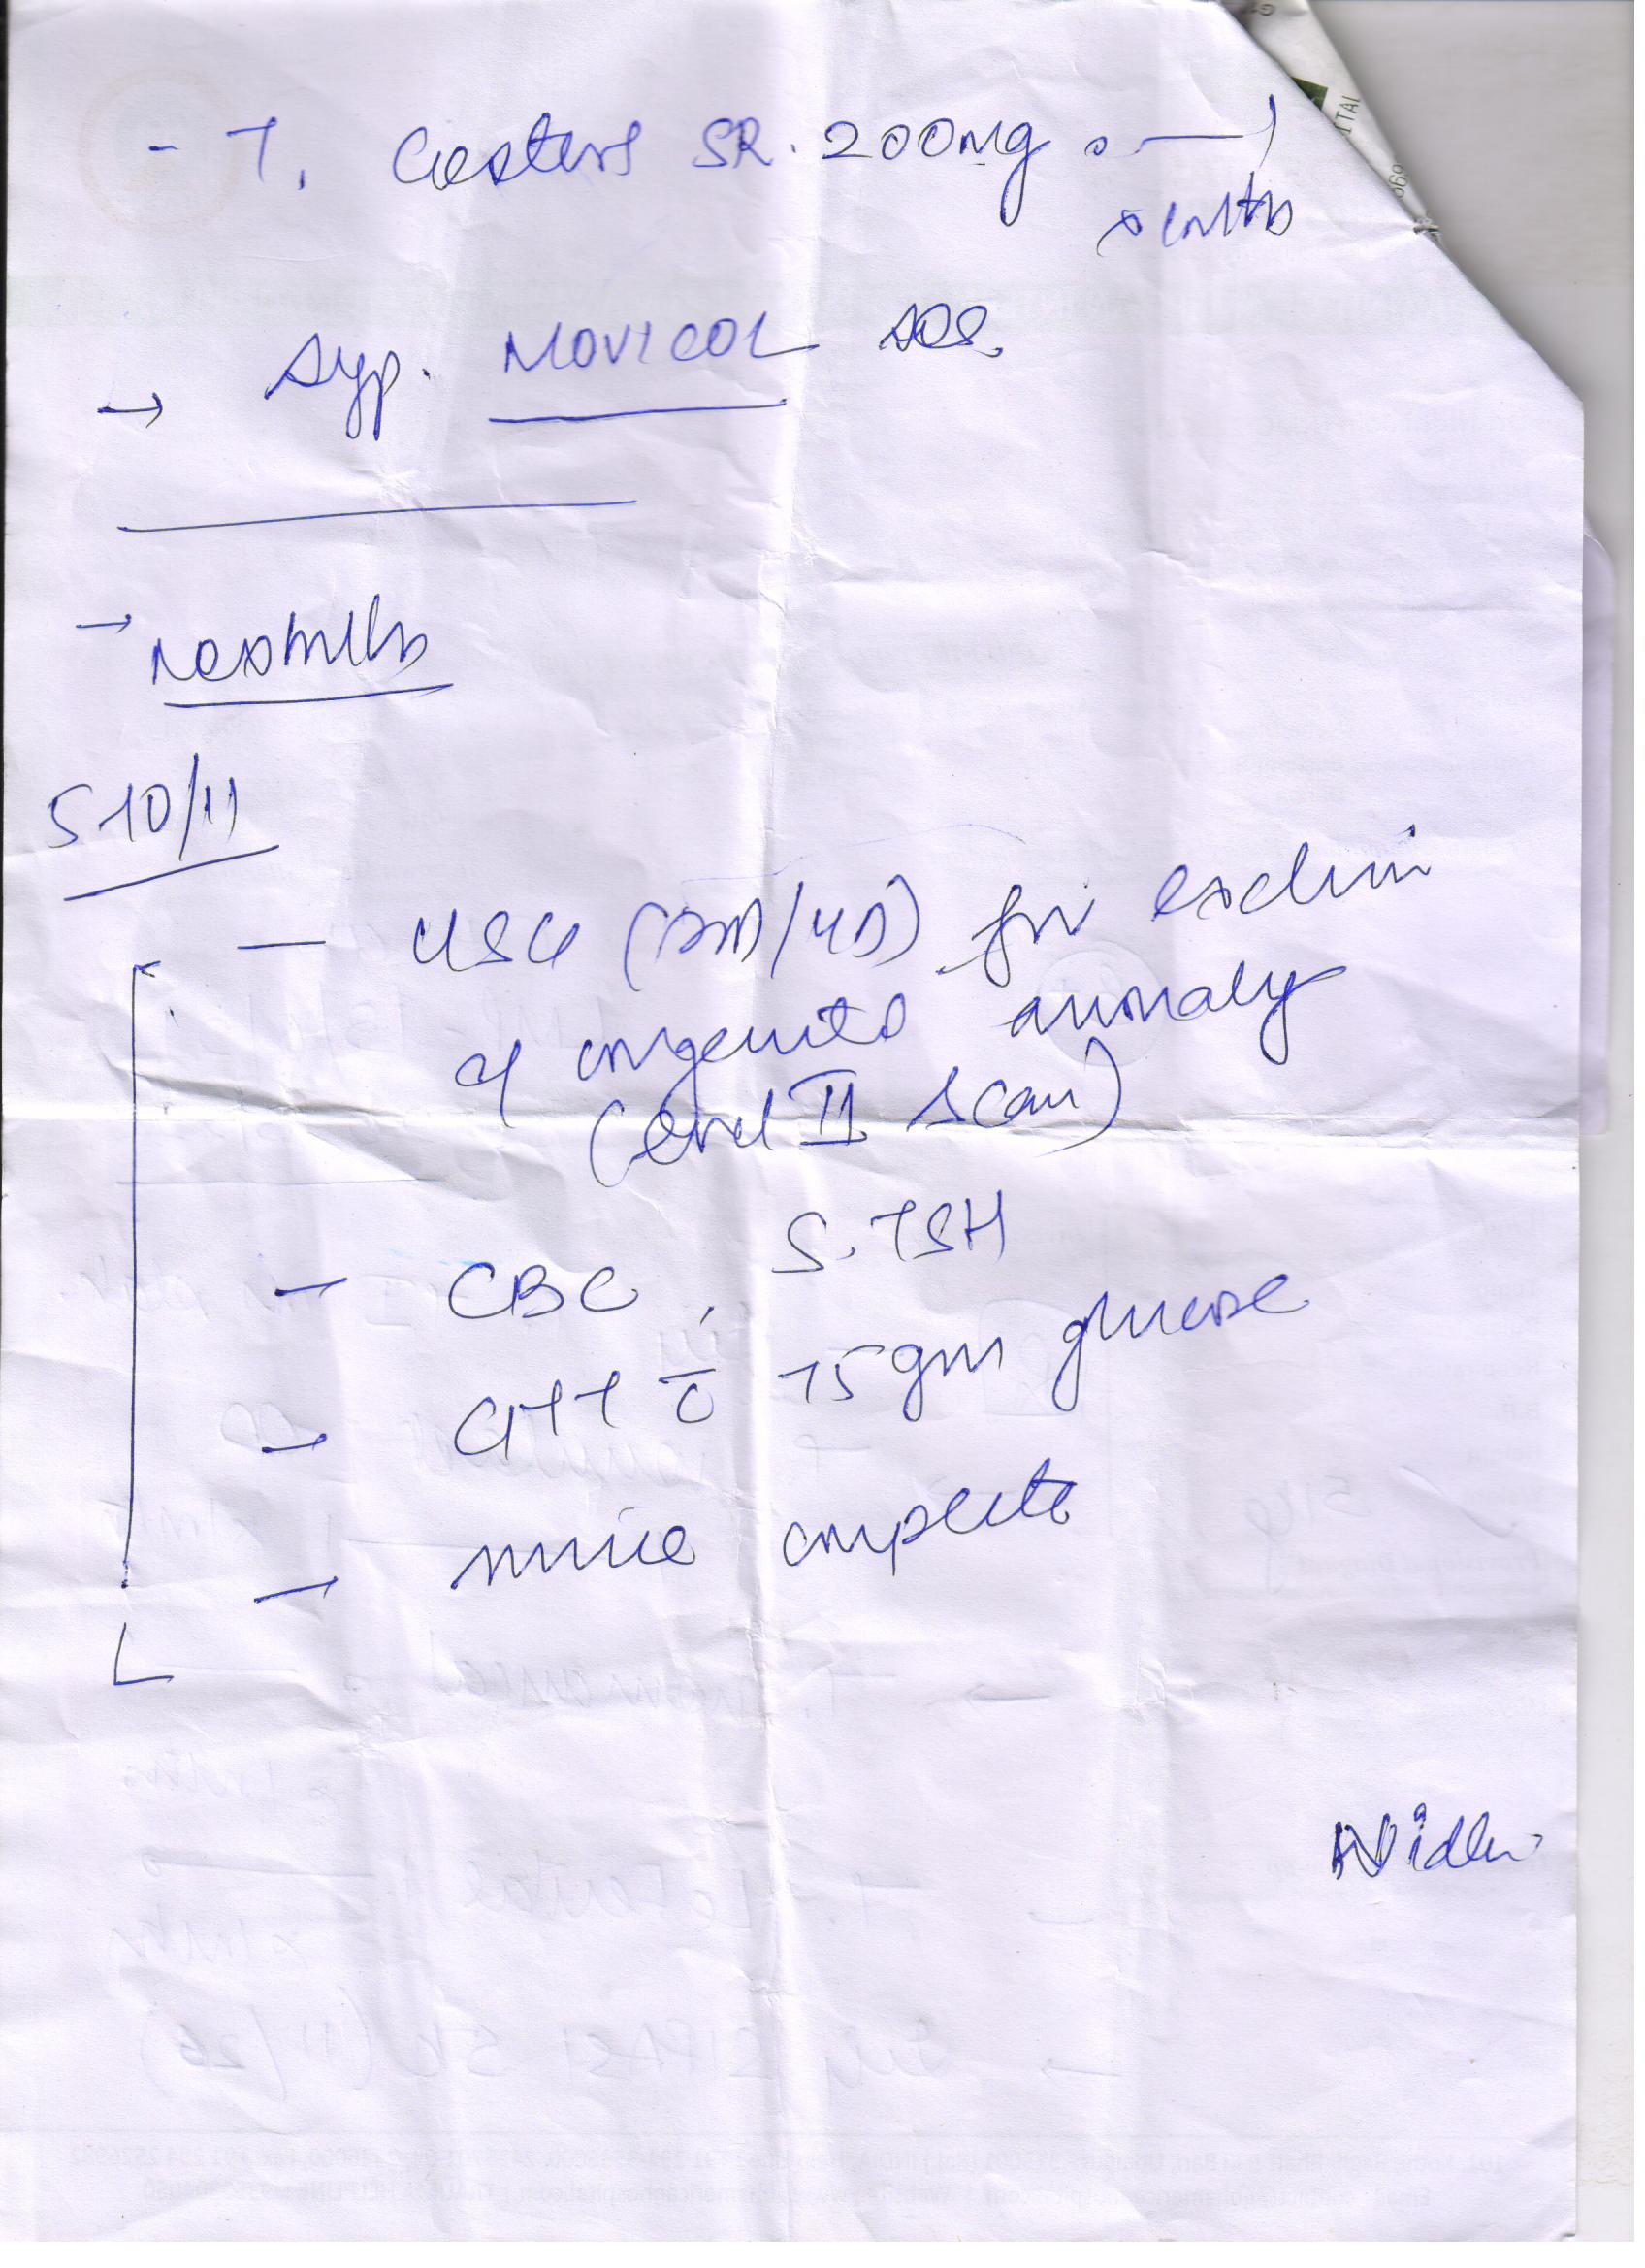 - T. SR. 200mg o —— 1
→ Syp. MOVICOL SOS
→
S 10/11
— USG (3D/4D) for
of congenital anomaly
(Level II Scan)
— CBC, S. TSH
— GTT c̄ 75gm glucose
— urine complete
Nidhi